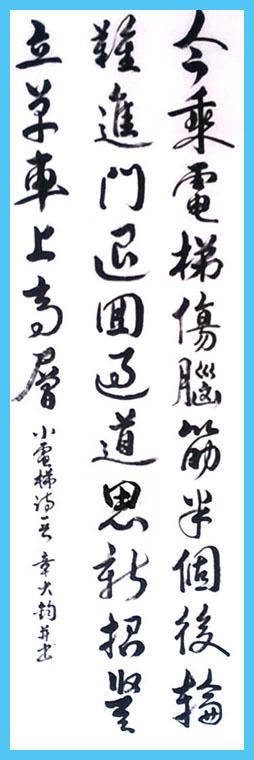 今乘電梯傷腦筋半個後輪
難進門退回過道思新招豎
立單車上高層
小電梯詩一首 章大鈞并书